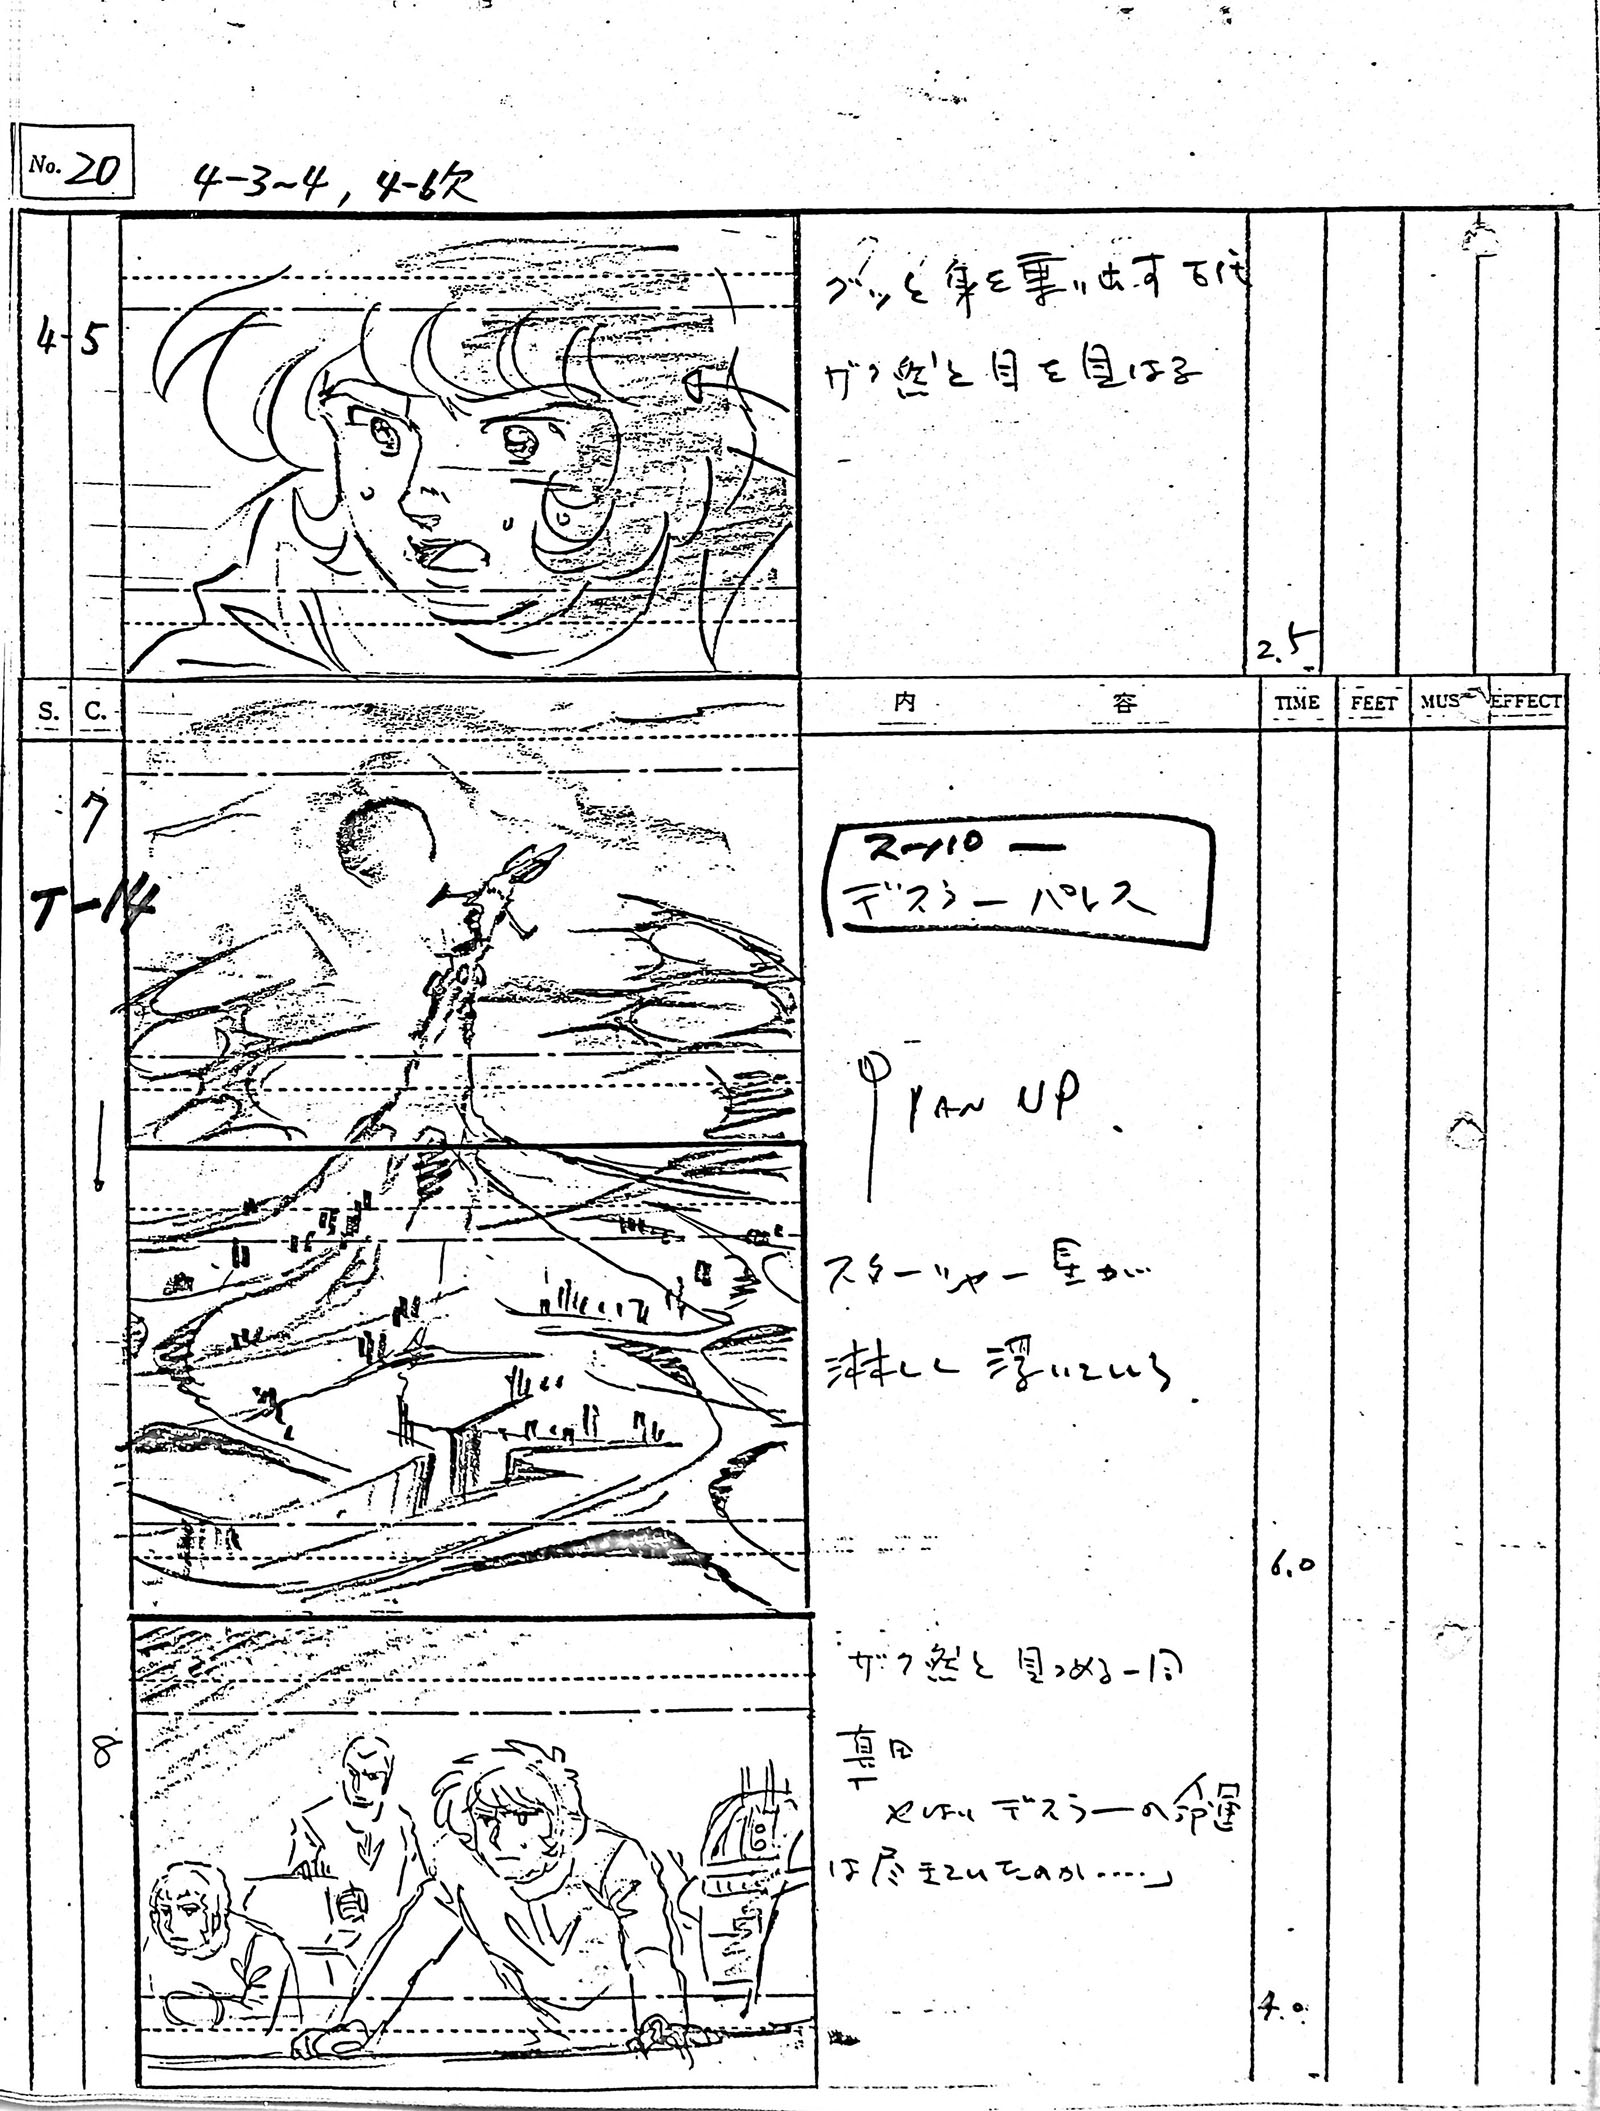 No. 20
4-3~4, 4-6欠
4-5
グッと身を乗り出す古代
ガク然と目を見はる
2.5
S. C. 内 容 TIME FEET MUS EFFECT
7
T-14
スーパー
デスラーパレス
PAN UP
スターシャー星が
淋しく浮いている
6.0
8
ガク然と見つめる一同
真田
やはりデスラーの命運
は尽きていたのか……」
4.0